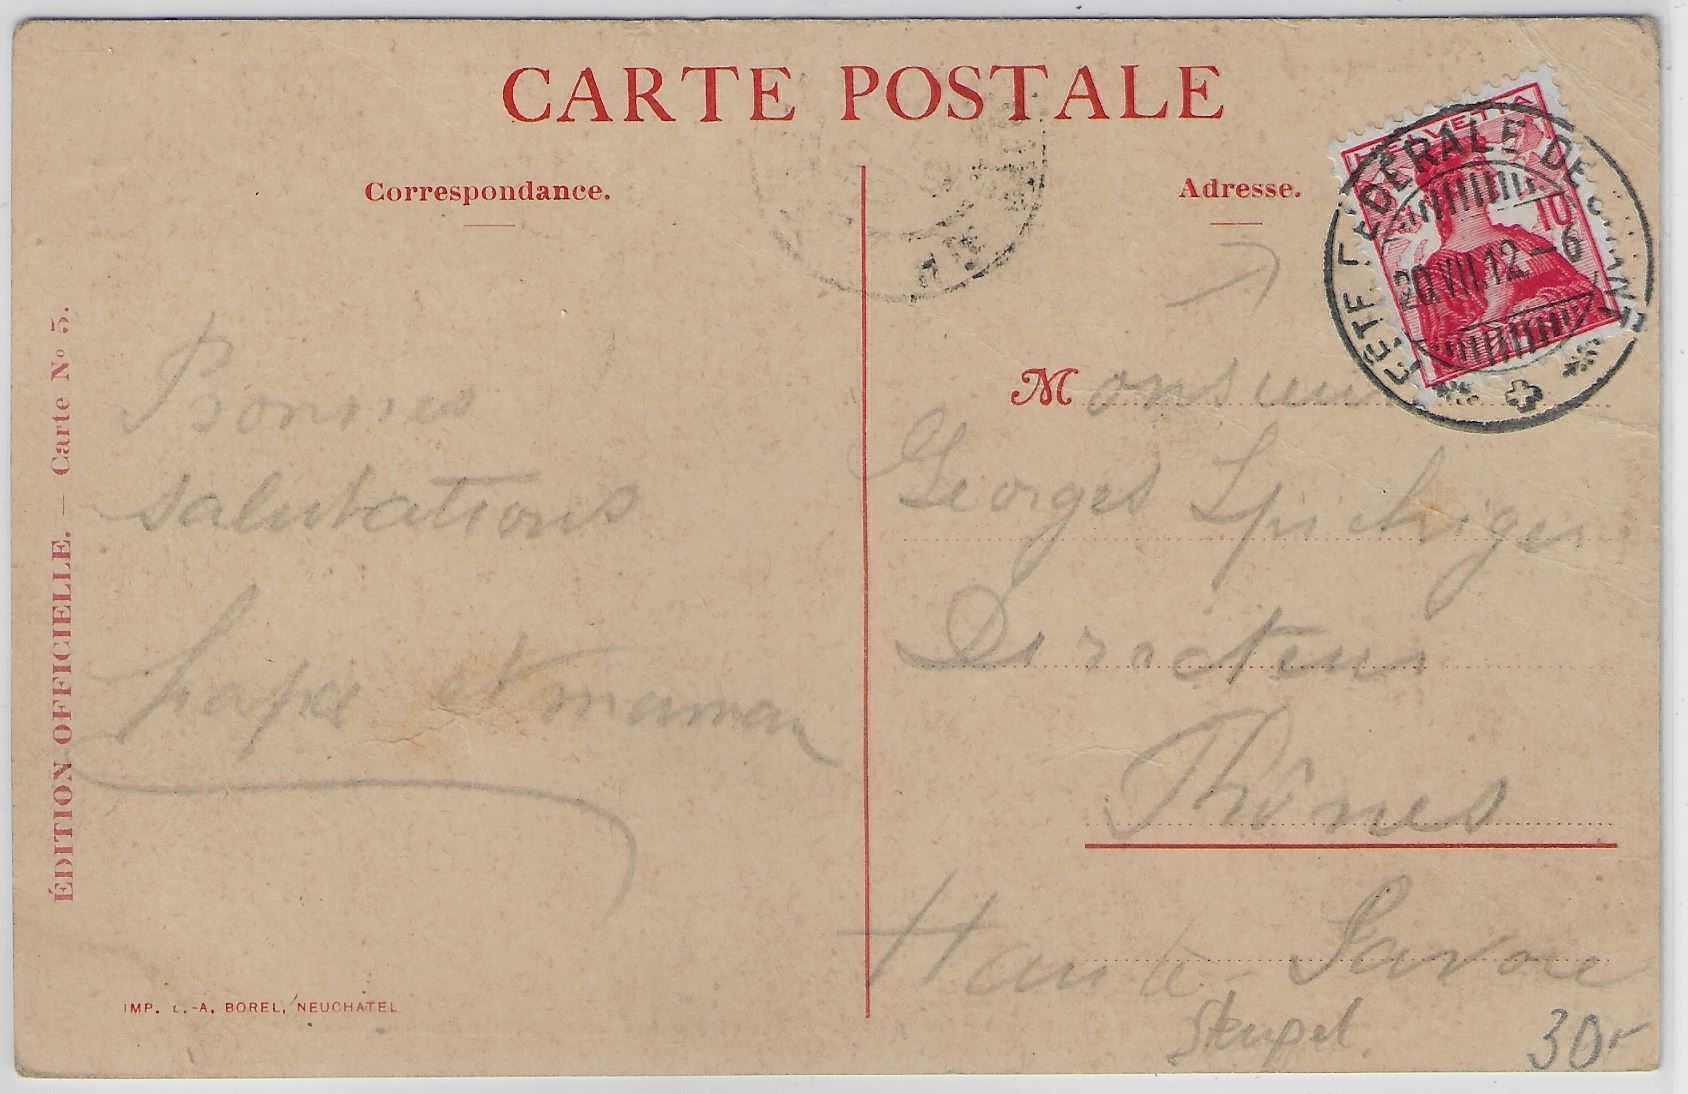 CARTE POSTALE
Correspondance.
Adresse.
HELVETIA
10
FÊTE FÉDÉRALE DE CHANT
20.VII.12.-6
ÉDITION OFFICIELLE. — Carte Nº 5.
Bonnes
salutations
papa et maman
Monsieur
Georges Spichiger
Directeur
Thônes
Haute Savoie
Stempel
30.-
IMP. BOREL, NEUCHATEL